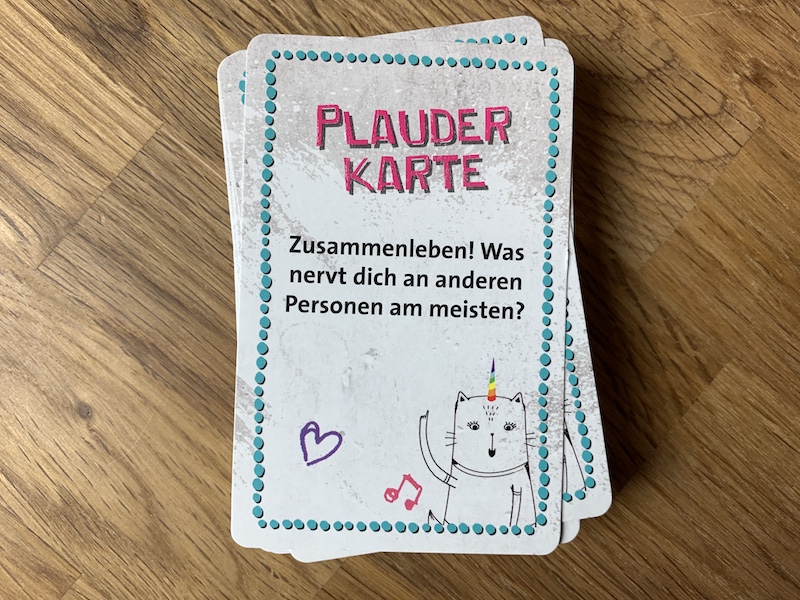 PLAUDER
KARTE
Zusammenleben! Was
nervt dich an anderen
Personen am meisten?